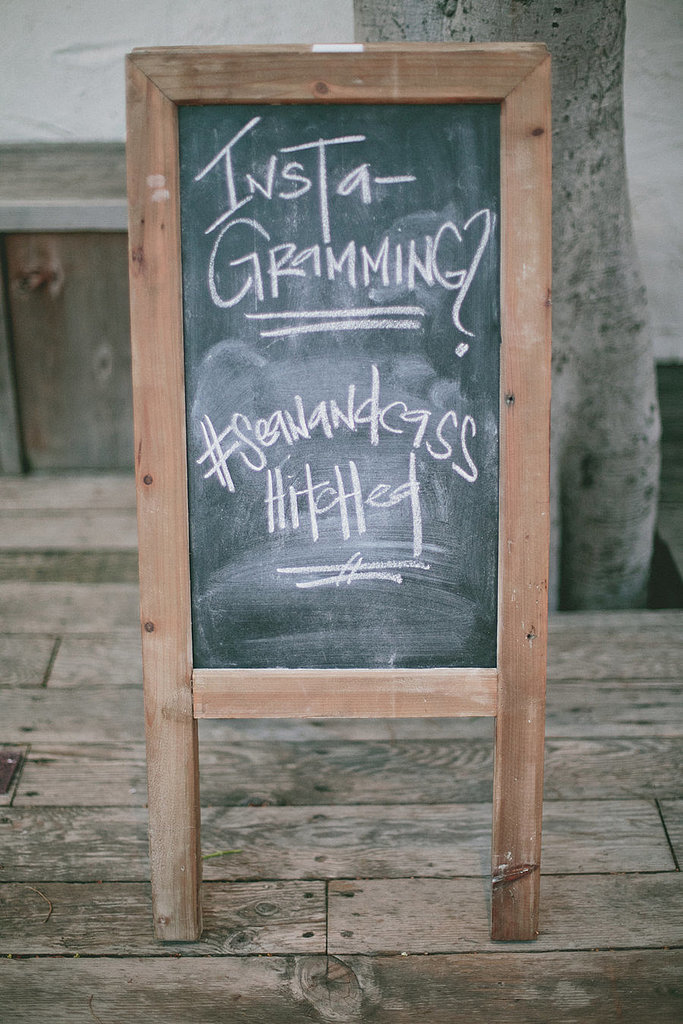 Insta-
Gramming?
#seanandcass
Hitched